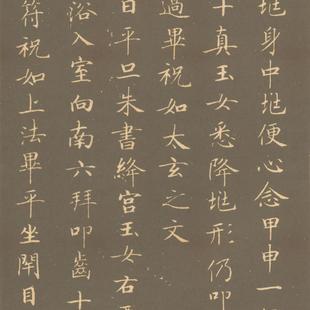 兆身中兆便心念甲申一
十真玉女悉降兆形仍叩
過畢祝如太玄之文
日平旦朱書絳宮玉女右
浴入室向南六拜叩齒十
符祝如上法畢平坐閉目